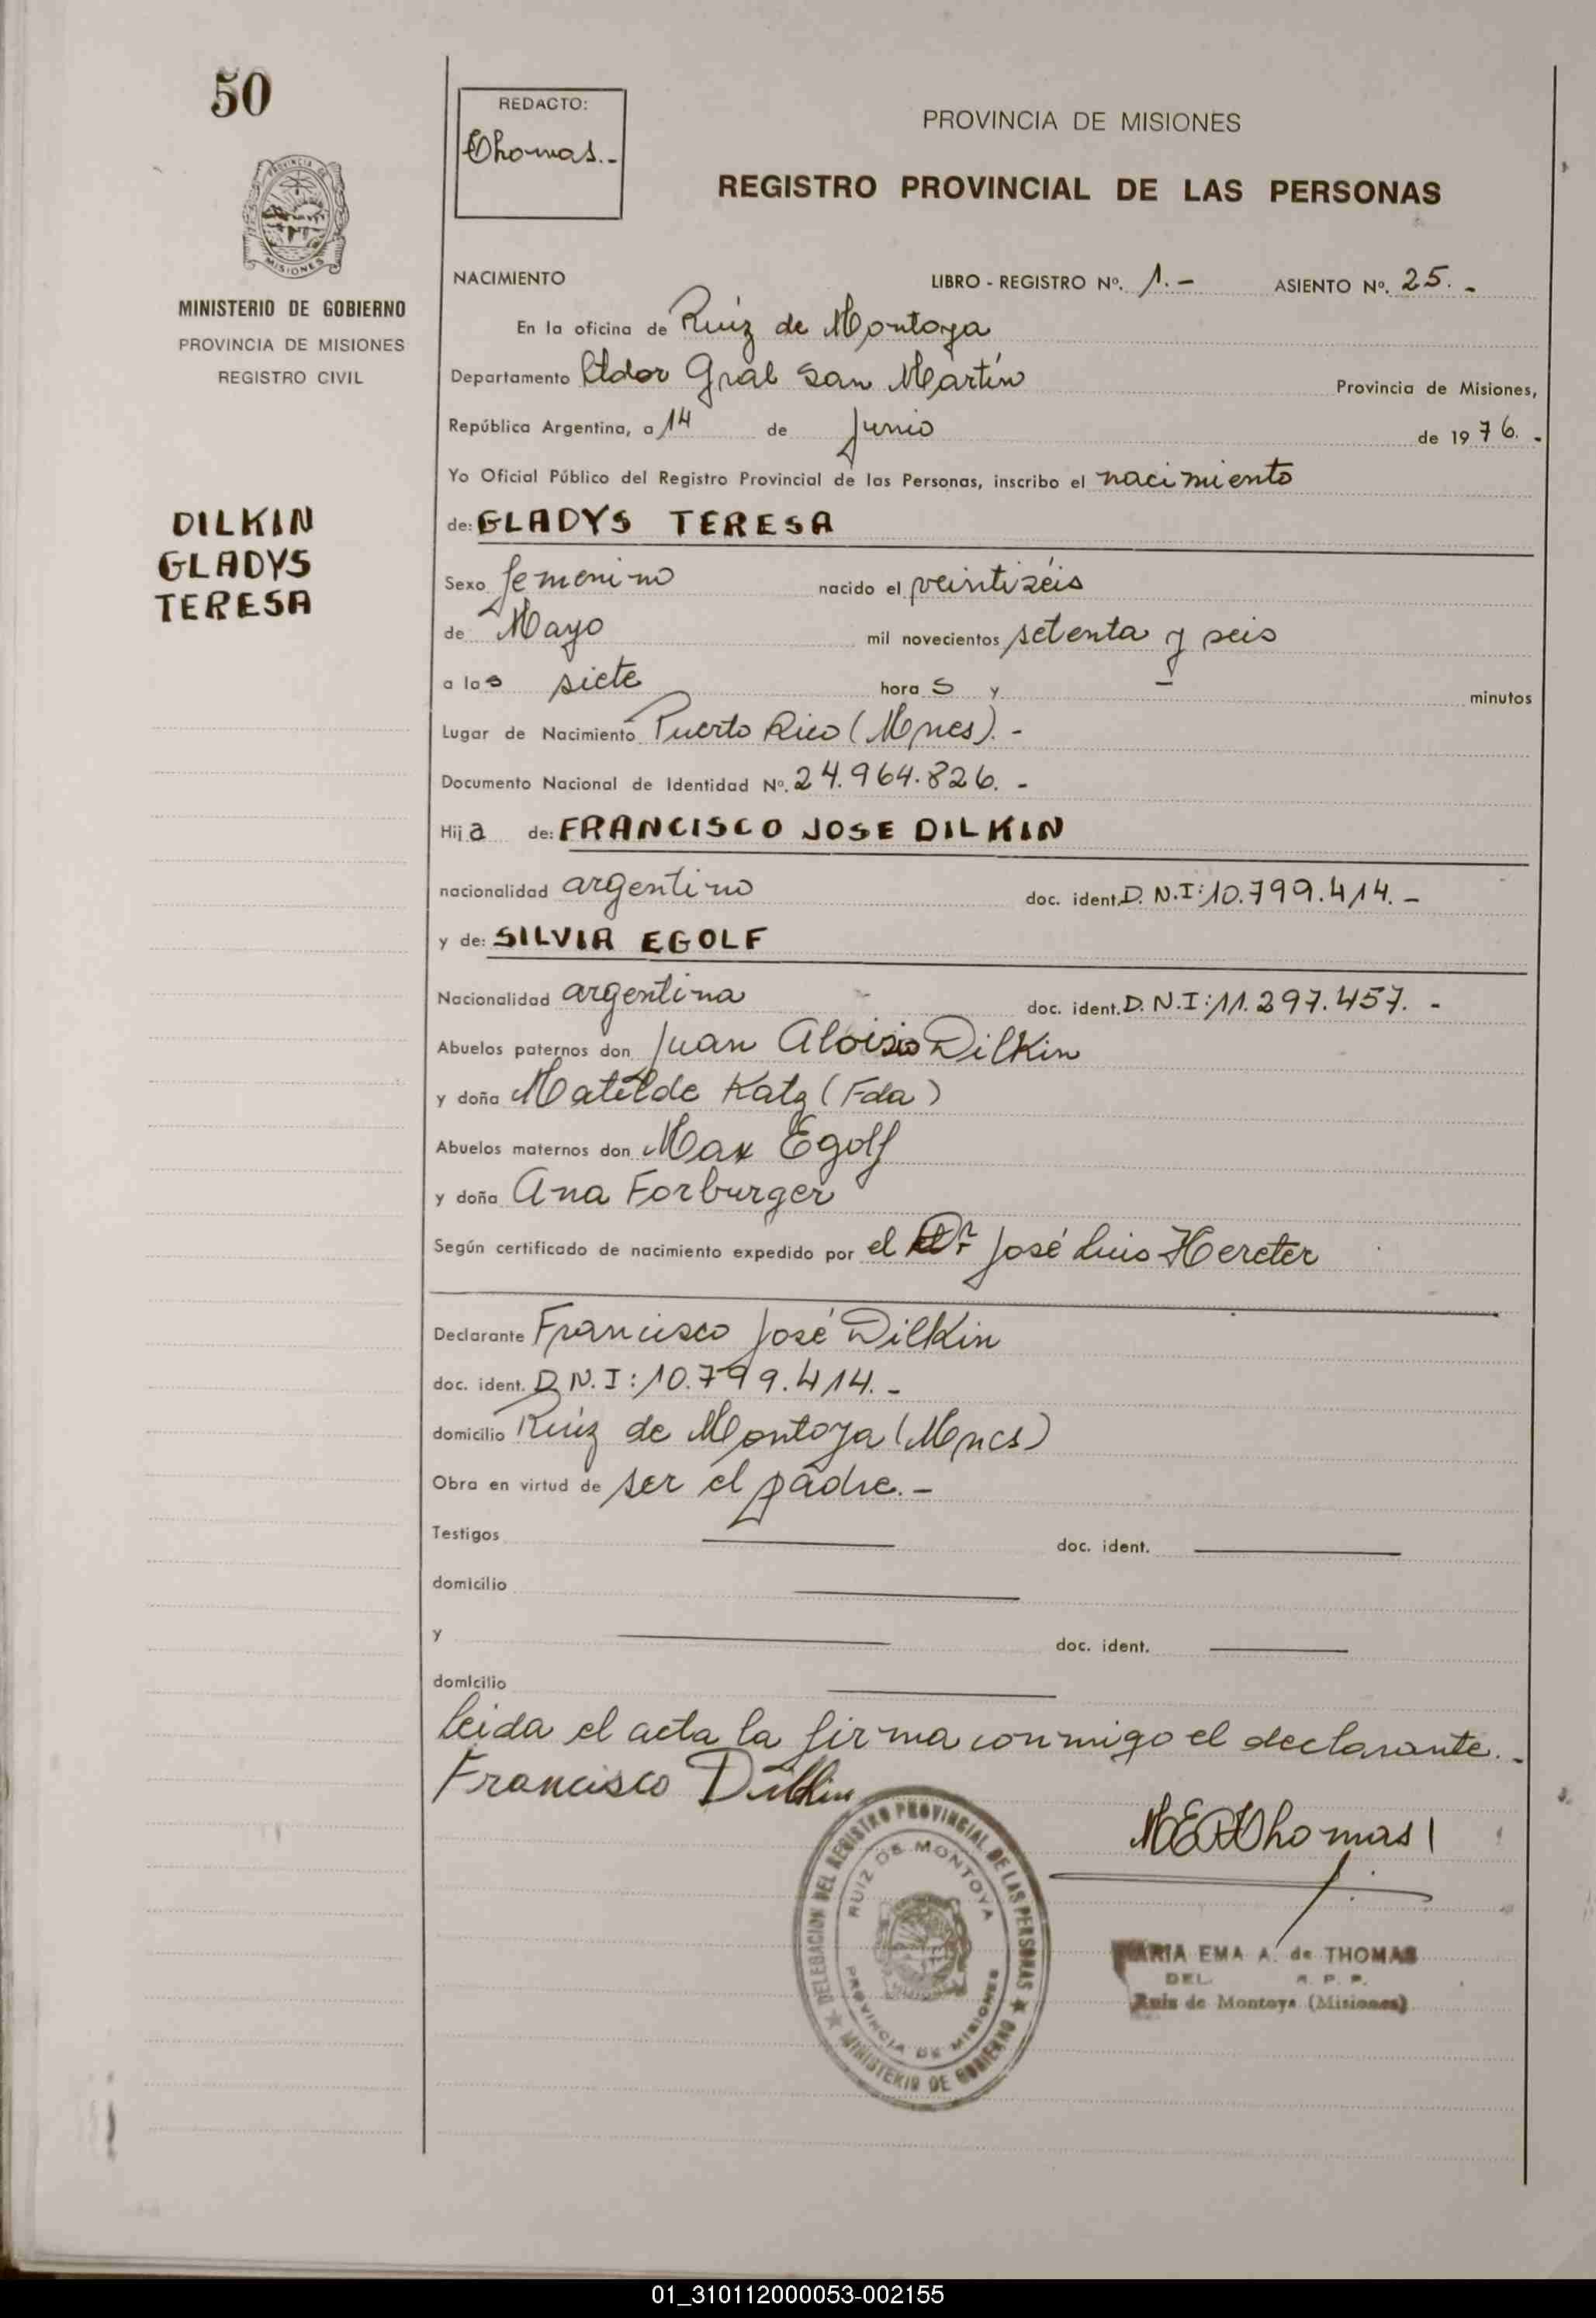 50
REDACTO:
Thomas.-
PROVINCIA DE MISIONES
REGISTRO PROVINCIAL DE LAS PERSONAS
PROVINCIA DE
MISIONES
MINISTERIO DE GOBIERNO
PROVINCIA DE MISIONES
REGISTRO CIVIL
DILKIN
GLADYS
TERESA
NACIMIENTO LIBRO - REGISTRO Nº. 1.- ASIENTO Nº. 25.-
En la oficina de Ruiz de Montoya
Departamento Ldor Gral San Martín Provincia de Misiones,
República Argentina, a 14 de Junio de 1976.-
Yo Oficial Público del Registro Provincial de las Personas, inscribo el nacimiento
de: GLADYS TERESA
Sexo femenino nacido el veintiséis
de Mayo mil novecientos setenta y seis
a las siete horas y - minutos
Lugar de Nacimiento Puerto Rico (Mnes).-
Documento Nacional de Identidad Nº. 24.964.826.-
Hija de: FRANCISCO JOSE DILKIN
nacionalidad argentino doc. ident. D.N.I:10.799.414.-
y de: SILVIA EGOLF
Nacionalidad argentina doc. ident. D.N.I:11.297.457.-
Abuelos paternos don Juan Aloisio Dilkin
y doña Matilde Katz (Fda)
Abuelos maternos don Max Egolf
y doña Ana Forburger
Según certificado de nacimiento expedido por el Dr José Luis Hereter
Declarante Francisco José Dilkin
doc. ident. D.N.I:10.799.414.-
domicilio Ruiz de Montoya (Mnes)
Obra en virtud de ser el padre.-
Testigos doc. ident.
domicilio
y doc. ident.
domicilio
leida el acta la firma conmigo el declarante.-
Francisco Dilkin
MEAThomas
DELEGACION DEL REGISTRO PROVINCIAL DE LAS PERSONAS
RUIZ DE MONTOYA
PROVINCIA DE MISIONES
MINISTERIO DE GOBIERNO
MARIA EMA A. de THOMAS
DEL. R. P. P.
Ruiz de Montoya (Misiones)
01_310112000053-002155